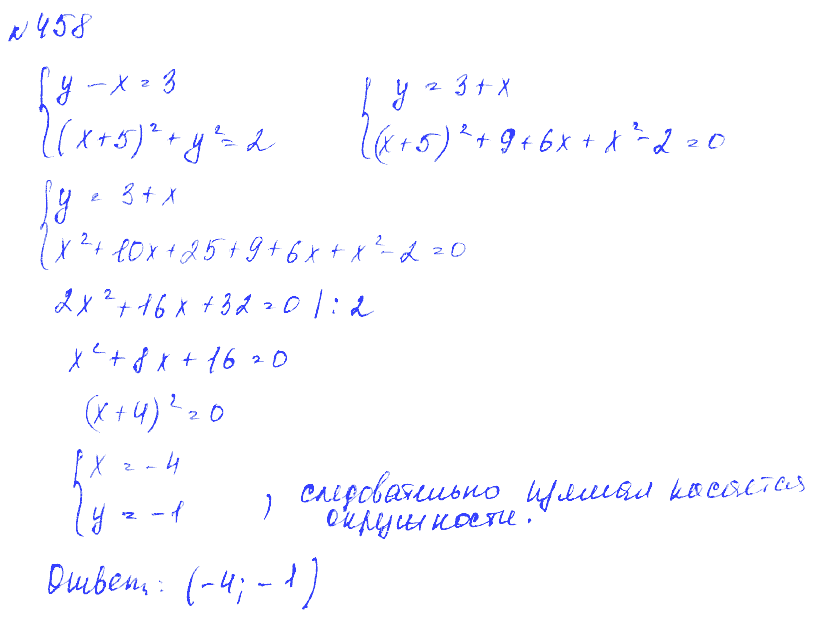 №458
{ y - x = 3
{ (x+5)² + y² = 2
{ y = 3 + x
{ (x+5)² + 9 + 6x + x² - 2 = 0
{ y = 3 + x
{ x² + 10x + 25 + 9 + 6x + x² - 2 = 0
2x² + 16x + 32 = 0 | : 2
x² + 8x + 16 = 0
(x+4)² = 0
{ x = -4
{ y = -1 , следовательно прямая касается
окружности.
Ответ: (-4; -1)